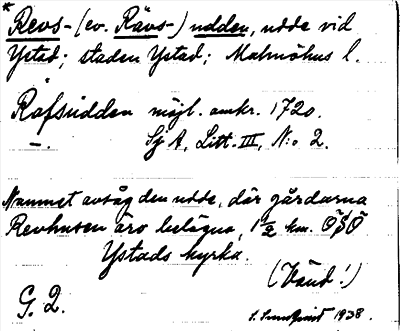 * Revs- (ev. Rävs-) udden, udde vid
Ystad; staden Ystad; Malmöhus l.
Räfsudden möjl. omkr. 1720.
—. Sj A, Litt. III, N:o 2.
Namnet avsåg den udde, där gårdarna
Revhusen äro belägna, 1½ km. ÖSÖ
Ystads kyrka.
(Vänd!)
G. 2.
1938.